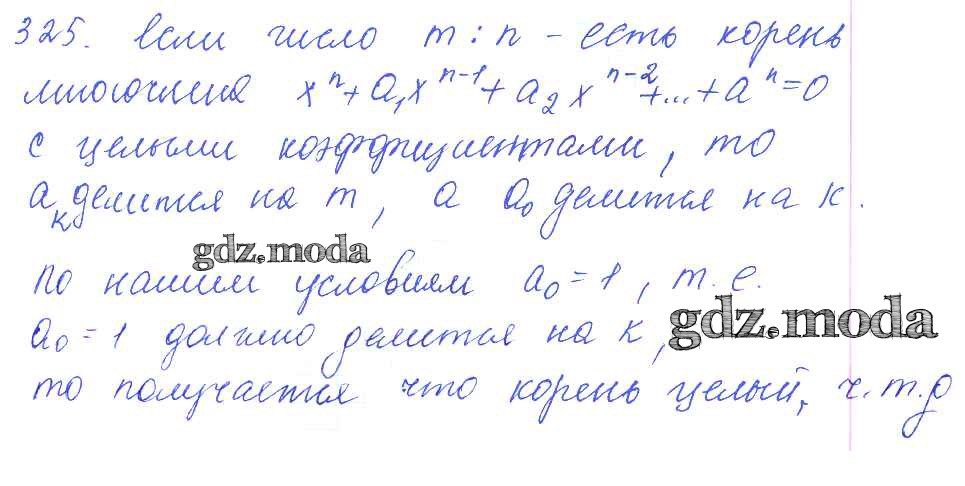 325. Если число m : n - есть корень
многочлена xⁿ + a₁xⁿ⁻¹ + a₂xⁿ⁻² + ... + aⁿ = 0
с целыми коэффициентами, то
aₖ делится на m, а a₀ делится на к.
gdz.moda
По нашим условиям a₀ = 1, т.е.
gdz.moda
a₀ = 1 должно делится на к,
то получается что корень целый, ч.т.д